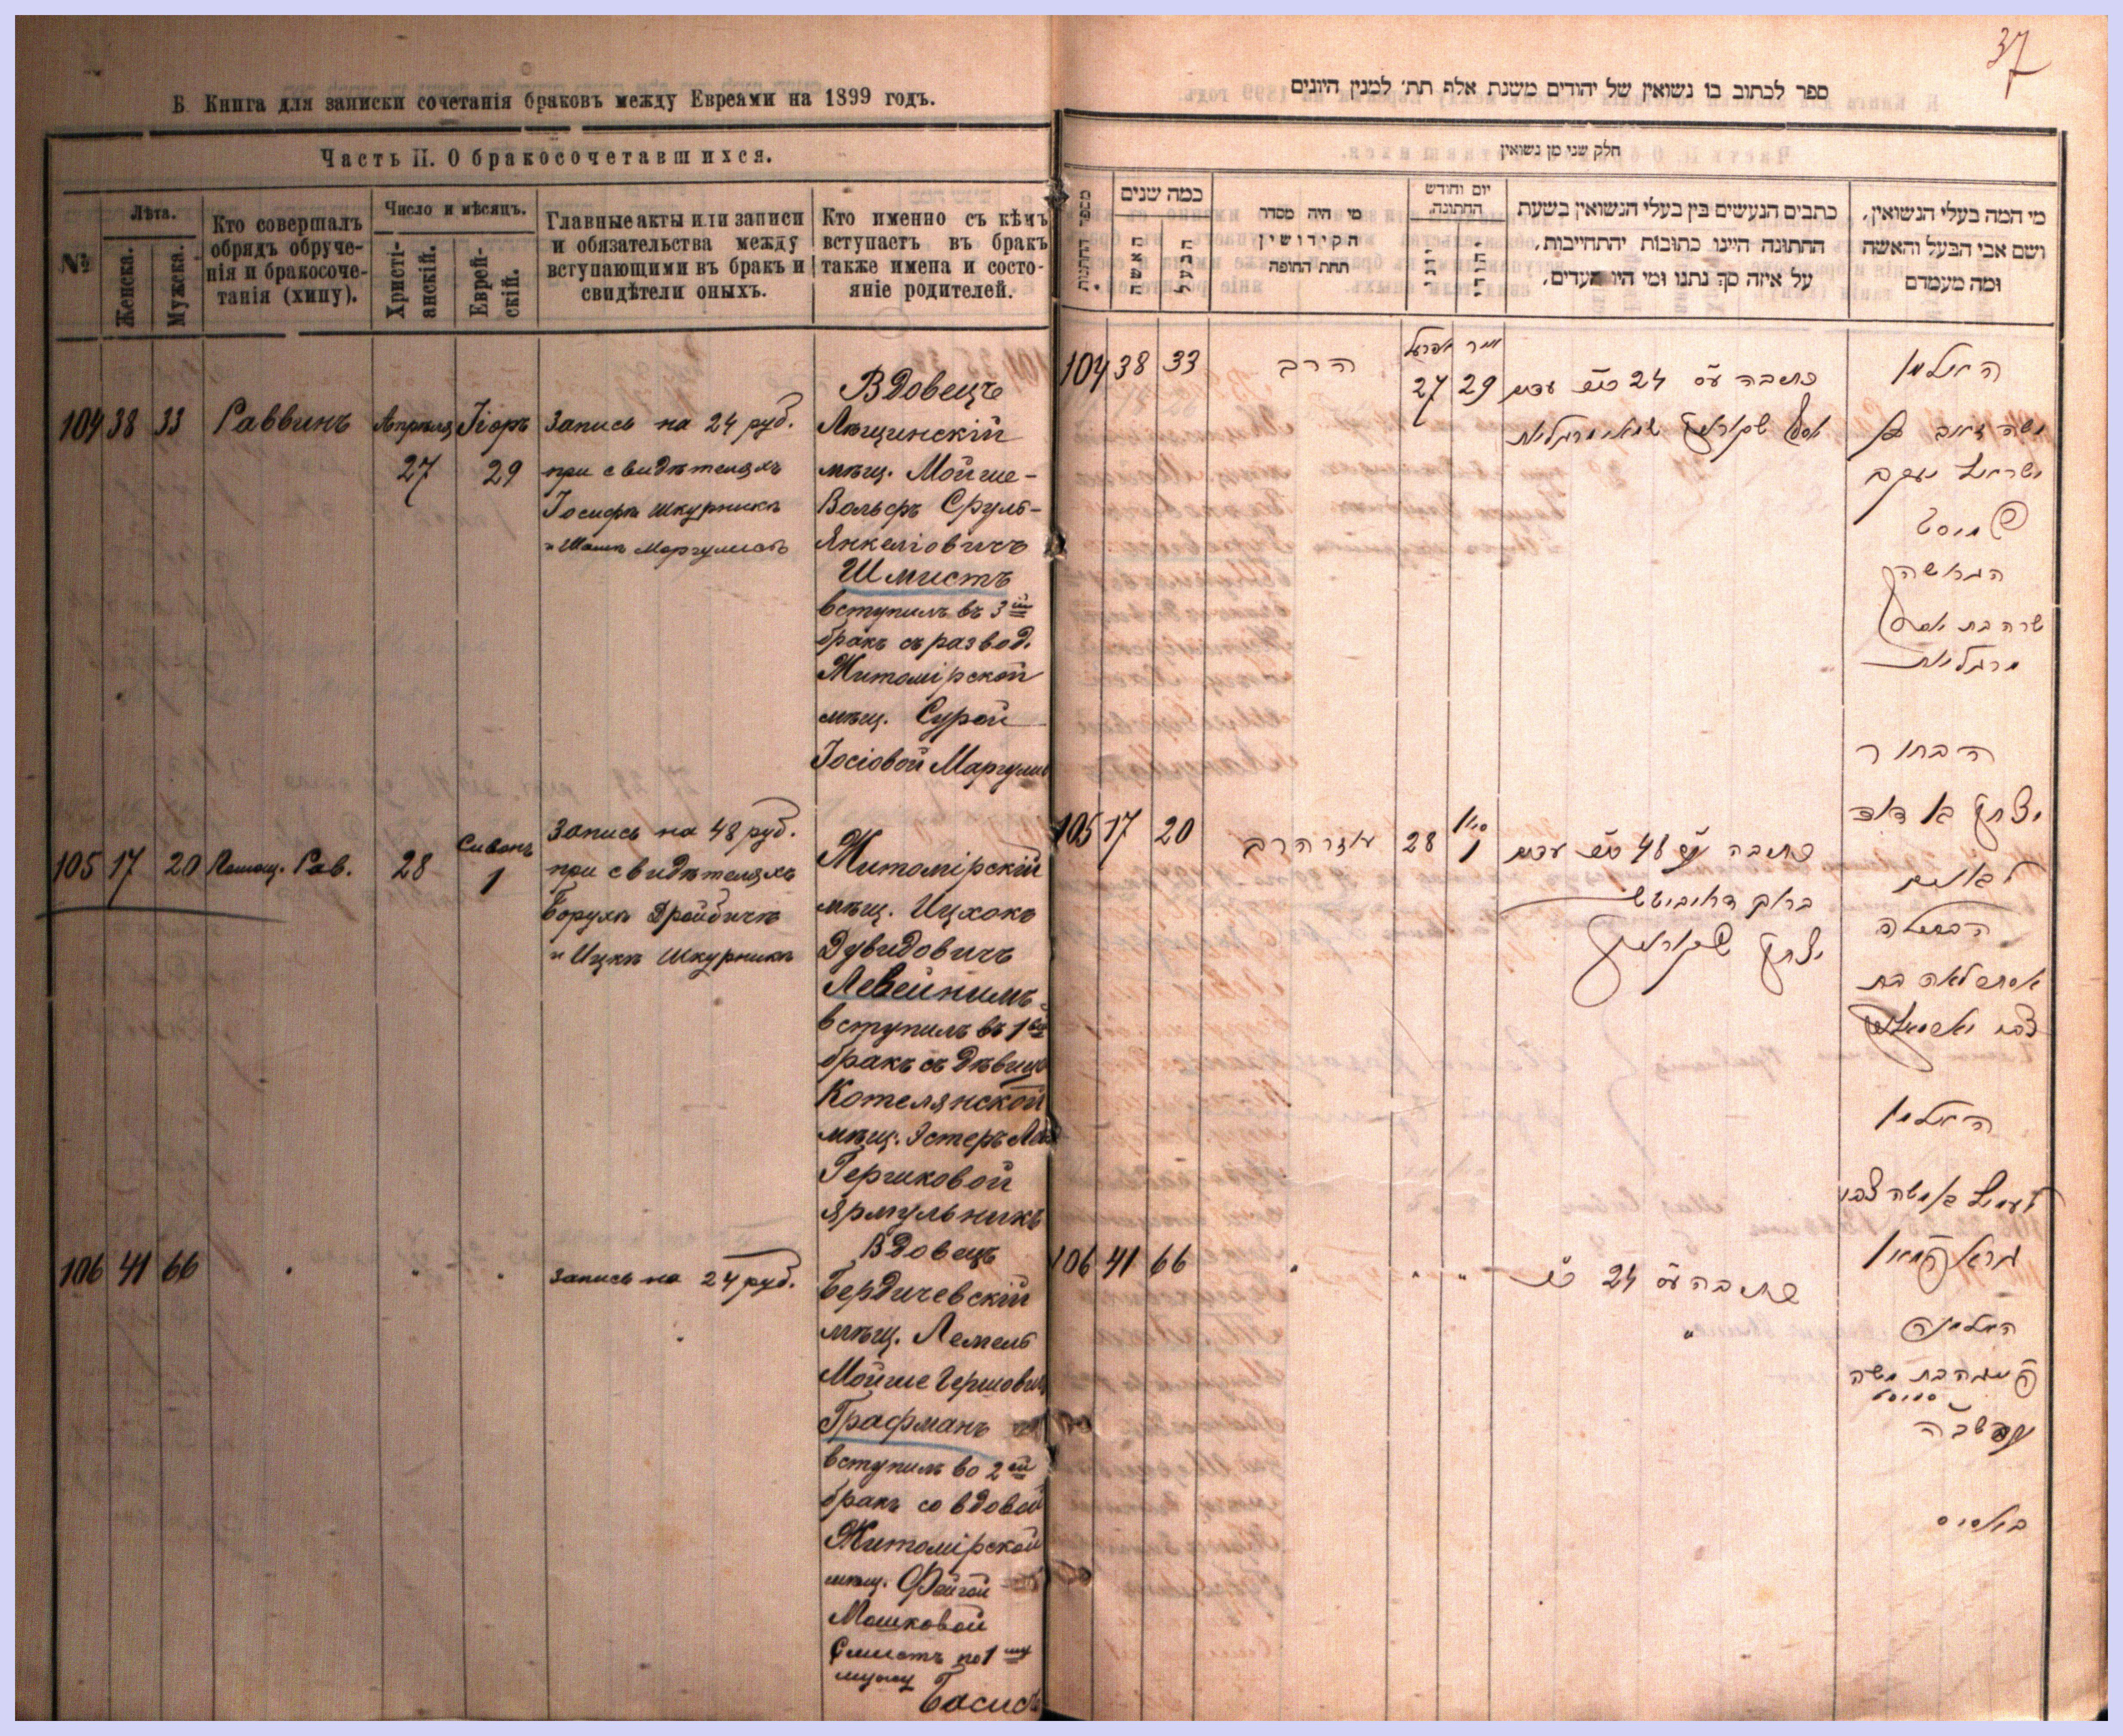 37
Б. Книга для записки сочетанія браковъ между Евреями на 1899 годъ.
Часть II. О бракосочетавшихся.
№
Лѣта.
Женска.
Мужска.
Кто совершалъ
обрядъ обруче-
нія и бракосоче-
танія (хипу).
Число и мѣсяцъ.
Христі-
анскій.
Еврей-
скій.
Главные акты или записи
и обязательства между
вступающими въ бракъ и
свидѣтели оныхъ.
Кто именно съ кѣмъ
вступаетъ въ бракъ
также имена и состо-
яніе родителей.
104 38 33 Раввинъ Апрѣля 27 Іоръ 29
Запись на 24 руб.
при свидѣтеляхъ
Іосифъ Шкурникъ
и Маргулисъ
Вдовецъ
мѣщ. Мойше-
Вольфъ Сруль-
Янкеліовичъ
Шмистъ
вступилъ въ 3ій
бракъ съ развод.
Житомірской
мѣщ. Сурой
Іосіовой Маргулис
105 17 20 Помощ. Рав. 28 Сивонъ 1
Запись на 48 руб.
при свидѣтеляхъ
Борухъ
и Ицкъ Шкурникъ
Житомірскій
мѣщ. Ицхокъ
Дувидовичъ
вступилъ въ 1ый
бракъ съ дѣвиц
Котелянской
мѣщ. Эстеръ
Гершковой
Ярмульникъ
106 41 66
Запись на 24 руб.
Вдовецъ
Бердичевскій
мѣщ. Лемель
Мойше Гершович
Графманъ
вступилъ во 2ой
бракъ со вдовой
Житомірской
мѣщ. Фейгой
Мошковой
по 1му
мужу
Басисъ
ספר לכתוב בו נשואין של יהודים משנת אלף תת׳ למנין היונים
חלק שני מן נשואין
מספר החתונות
כמה שנים
האשה
הבעל
מי היה מסדר
הקידושין
תחת החופה
יום וחודש
החתונה.
יוני
יהודי
כתבים הנעשים בין בעלי הנשואין בשעת
החתונה היינו כתובות והתחייבות,
על איזה סך נתנו ומי היו העדים.
מי המה בעלי הנשואין,
ושם אבי הבעל והאשה
ומה מעמדם
104 38 33 הרב אפריל 27 אייר 29
כתובה ע״ס 24 עדים
האלמן
משה זאב בן
ישראל יעקב
הגרושה
שרה בת יוסף
מרגליות
105 17 20 עוזר הרב 28 סיון 1
כתובה ע״ס 48 עדים
ברוך
יצחק שקורניק
הבחור
יצחק בן דוד
הבתולה
אסתר לאה בת
צבי יארמולניק
106 41 66
כתובה ע״ס 24
האלמן
לעמיל בן משה צבי
גראפמאן
האלמנה
פייגה בת משה
באסיס